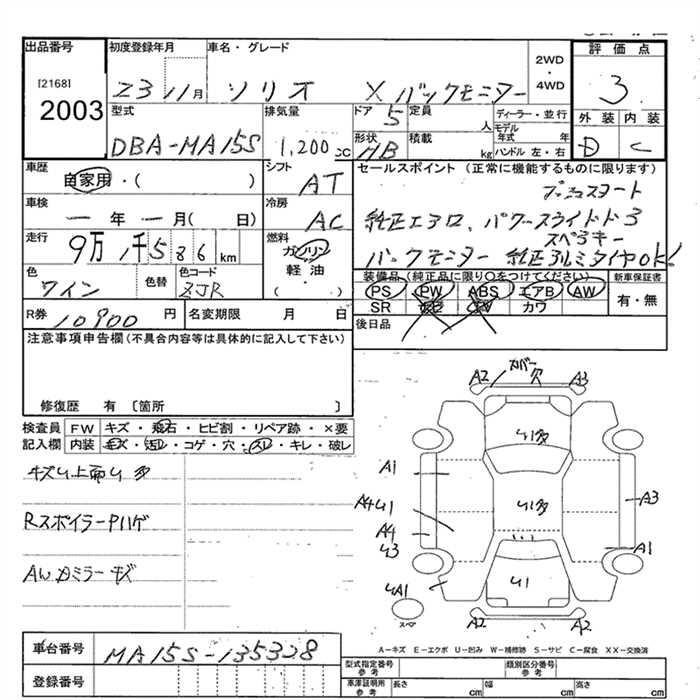 出品番号 初度登録年月 車名・グレード 2WD・4WD 評価点
[2168]
2003 23 11月 ソリオ X バックモニター 3
型式 排気量 ドア 5 定員 人 ディーラー・並行 外装 内装
DBA-MA15S 1,200 CC 形状 HB 積載 kg モデル年式 年 ハンドル 左・右 D C
車歴 自家用・( ) シフト AT セールスポイント (正常に機能するものに限ります)
プッシュスタート
車検 一年一月( 日) 冷房 AC 純正エアロ、パワースライドドア
走行 9万1千586km 燃料 ガソリン 軽油 ・( ) スペアキー
バックモニター 純正アルミタイヤOK!
色 ワイン 色替 色コード ZJR 装備品 (純正品に限り○をつけてください) 新車保証書
PS PW ABS エアB AW 有・無
R券 10900 円 名変期限 月 日 SR ナビ カワ
注意事項申告欄 (不具合内容等は具体的に記入して下さい) 後日品
修復歴 有 〔箇所 〕
検査員 FW キズ・飛石・ヒビ割・リペア跡・×要
記入欄 内装 キズ・汚レ・コゲ・穴・スレ・キレ・破レ
キズU上面U多
RスポイラーPハゲ
AWカミラーキズ
A2 カバー 欠 A3
U1多
A1
A4U1 U1多 A3
A4
U3 A1
UA1 U1
スペア A2 A2
車台番号 MA15S-135328
登録番号
A-キズ E-エクボ U-凹み W-補修跡 S-サビ C-腐食 XX-交換済
型式指定番号 参考 類別区分番号 参考
車庫証明用 参考 長さ cm 幅 cm 高さ cm